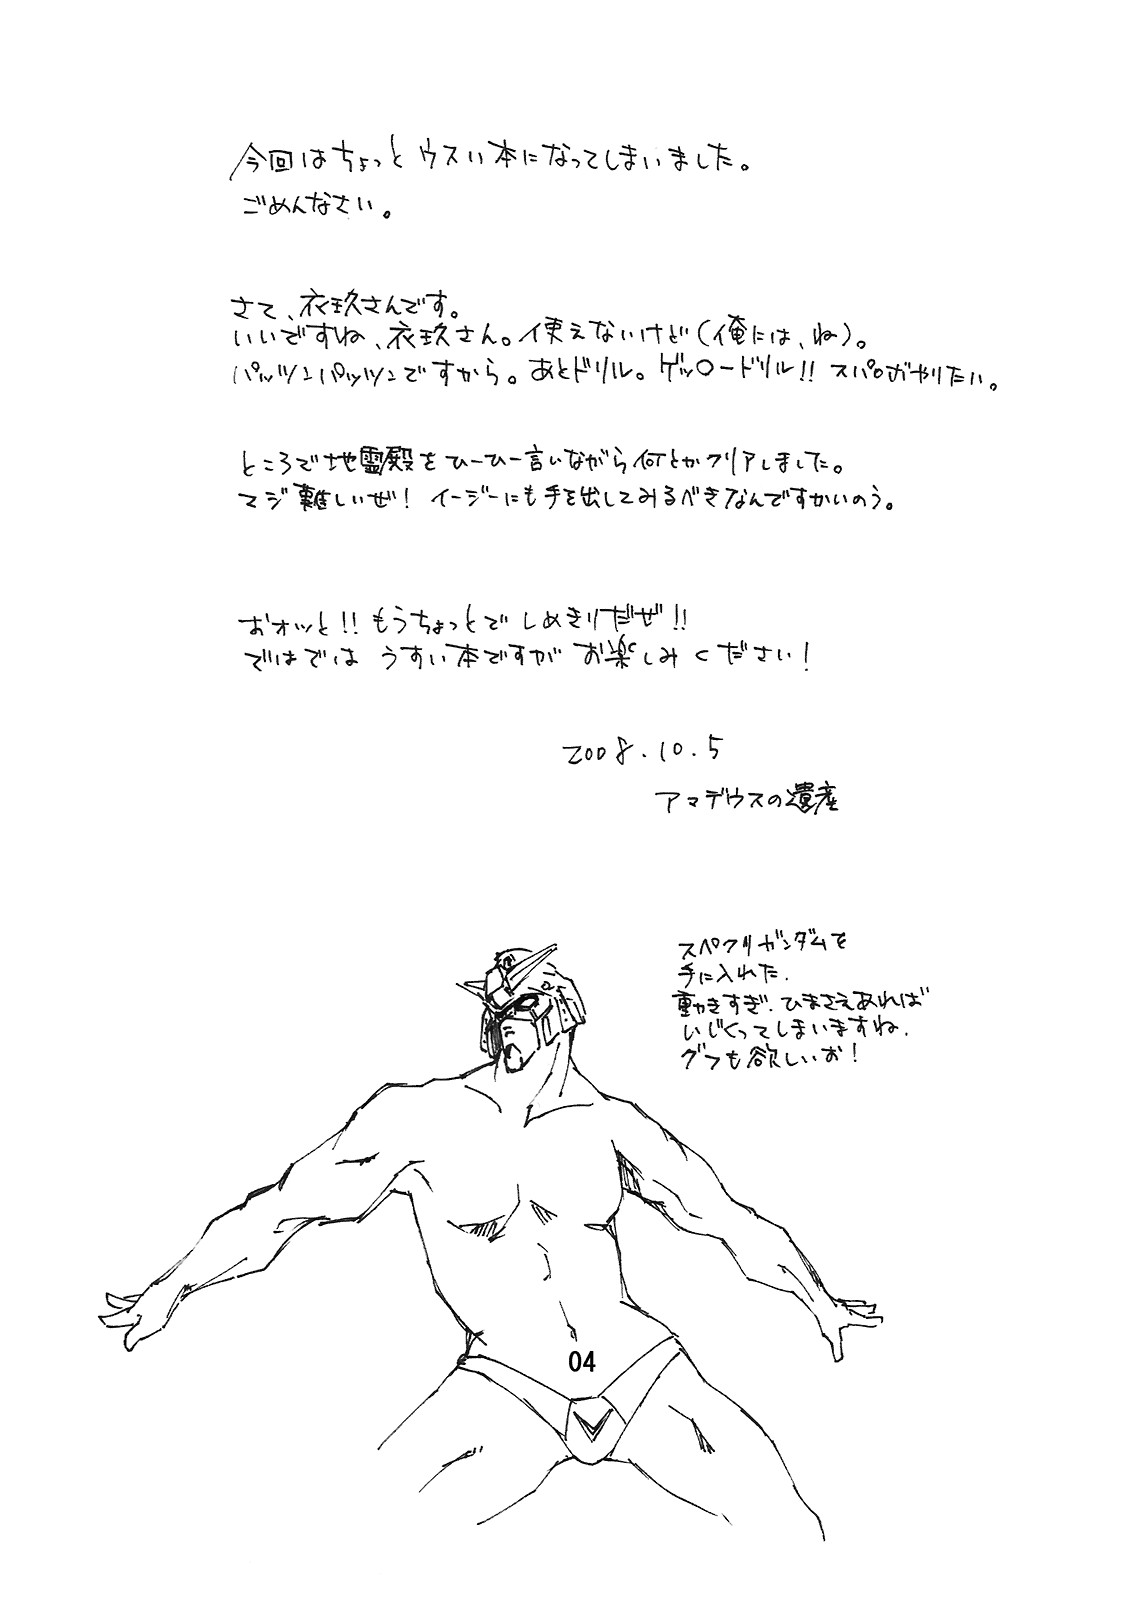 今回はちょっとウスい本になってしまいました。
ごめんなさい。
さて、衣玖さんです。
いいですね、衣玖さん。使えないけど(俺には、ね)。
パッツンパッツンですから。あとドリル。ゲッ○ードリル!! スパロボやりたい。
ところで地霊殿をひーひー言いながら何とかクリアしました。
マジ難しいぜ! イージーにも手を出してみるべきなんですかいのう。
おオッと!! もうちょっとでしめきりだぜ!!
ではでは うすい本ですが お楽しみください!
2008.10.5
アマデウスの遺産
スペクリガンダムを
手に入れた.
動きすぎ. ひまさえあれば
いじくってしまいますね.
グフも欲しいお!
04